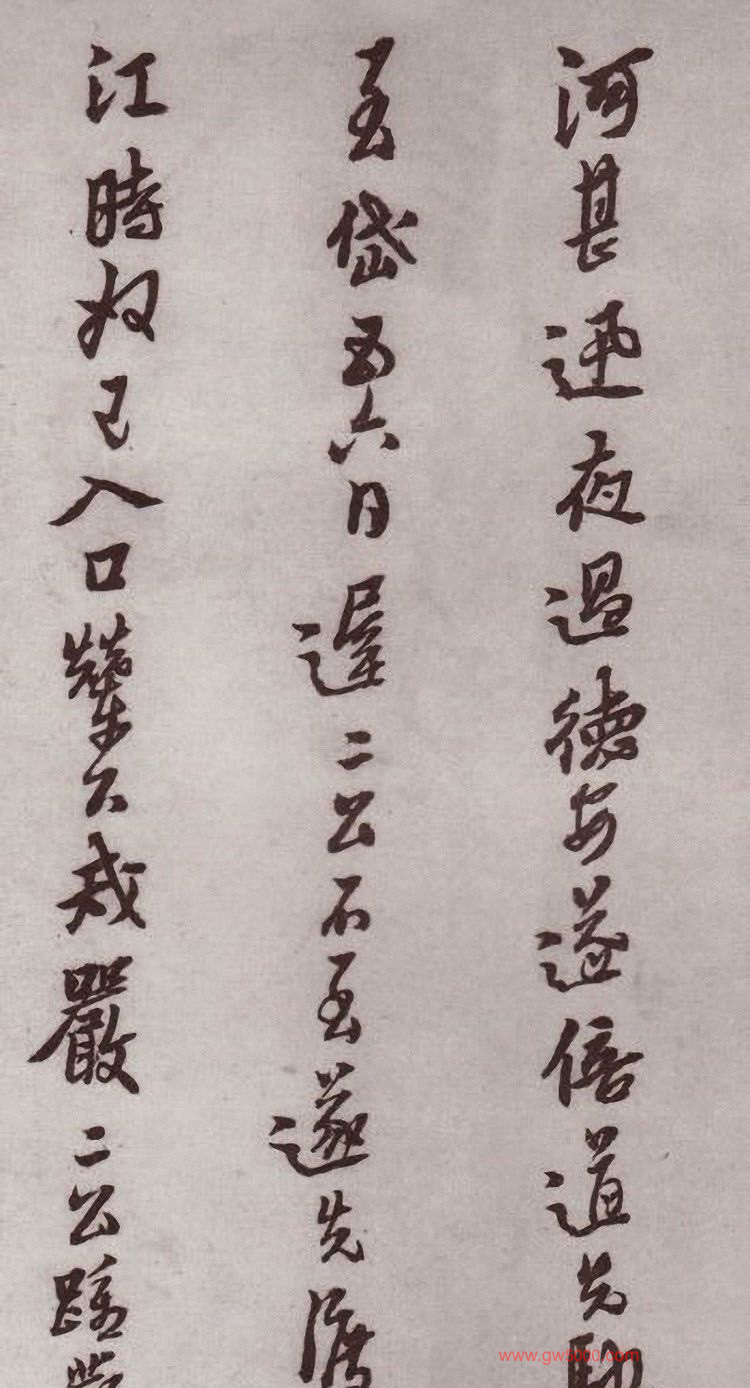 河甚迅夜過德安遂倍道先
至岱五六日遲二公不至遂先渡
江時奴已入口輦下戒嚴二公蹤
www.gw5000.com